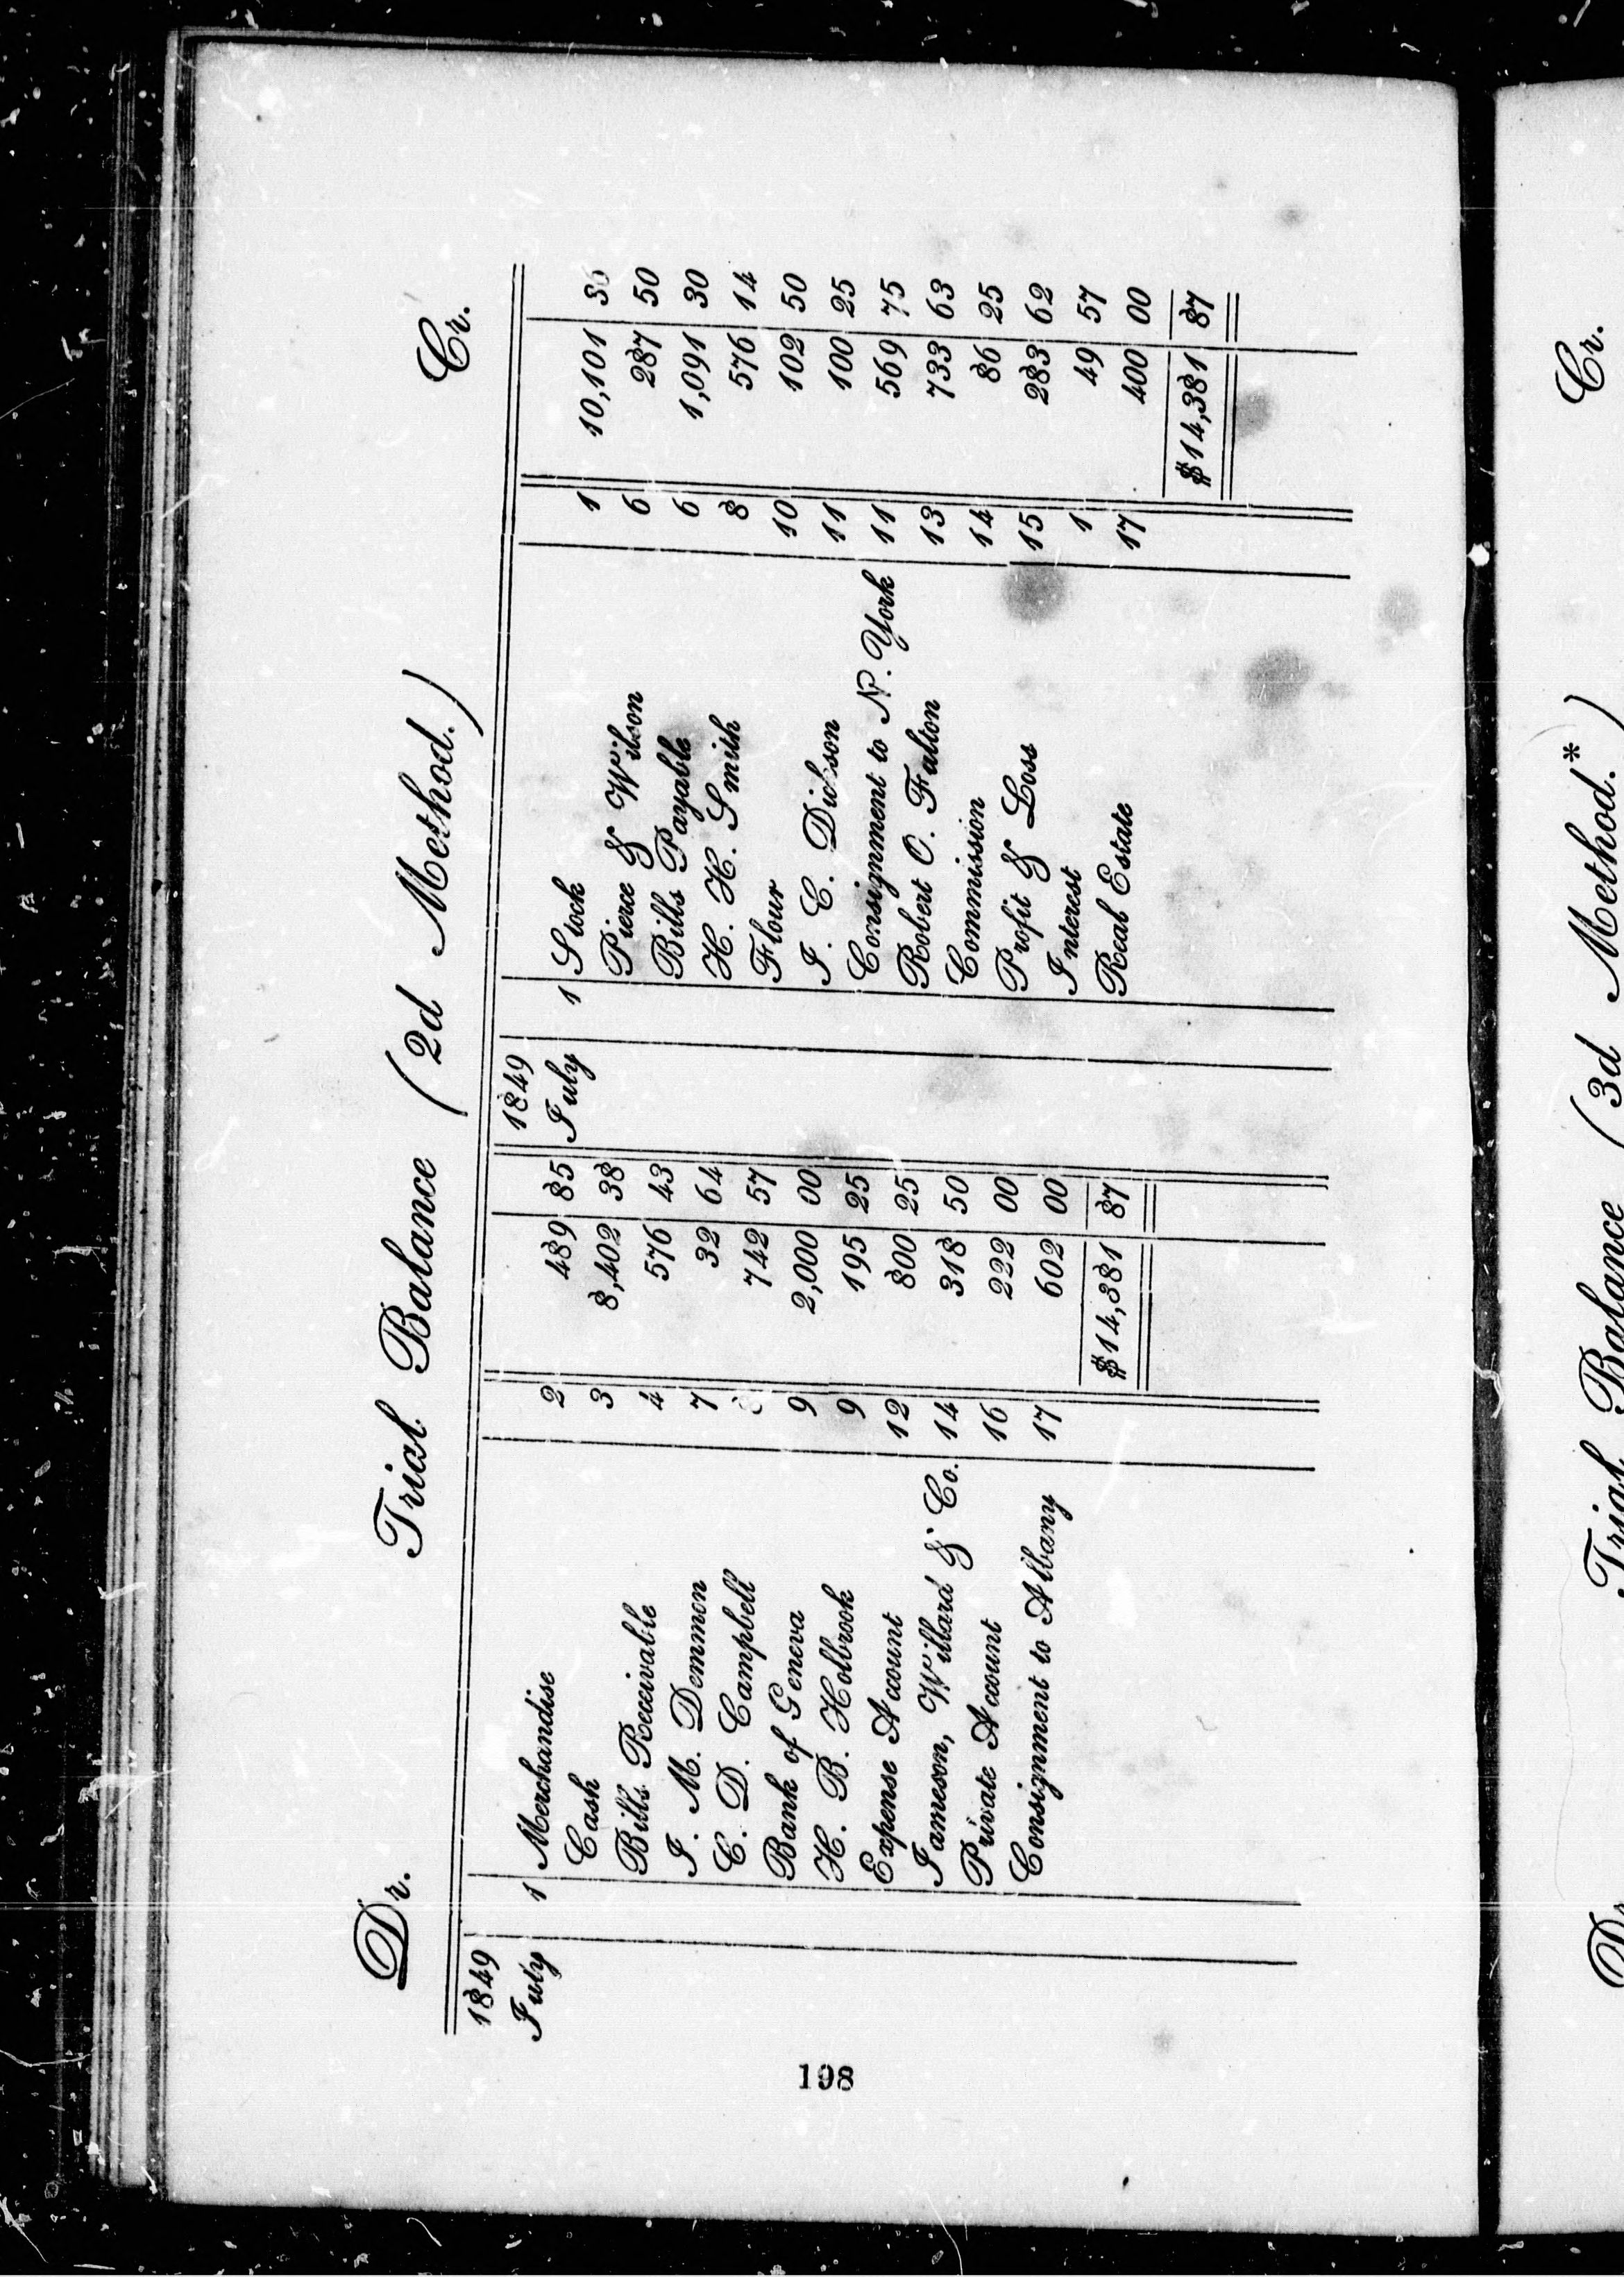 Dr. Trial Balance (2d Method.) Cr.
1849 1849
July 1 Merchandise 2 489 85 July 1 Stock 1 10,101 36
Cash 3 8,402 38 Pierce & Wilson 6 287 50
Bills Receivable 4 576 43 Bills Payable 6 1,091 30
J. M. Demmon 7 32 64 H. H. Smith 8 576 14
C. D. Campbell 742 57 Flour 10 102 50
Bank of Geneva 9 2,000 00 J. C. Dickson 11 100 25
H. B. Holbrook 9 195 25 Consignment to N. York 11 569 75
Expense Account 12 800 25 Robert O. Falton 13 733 63
Jameson, Willard & Co. 14 318 50 Commission 14 86 25
Private Account 16 222 00 Profit & Loss 15 283 62
Consignment to Albany 17 602 00 Interest 1 49 57
Real Estate 17 400 00
$14,381 87 $14,381 87
198
Dr. Trial Balance (3d Method.*) Cr.